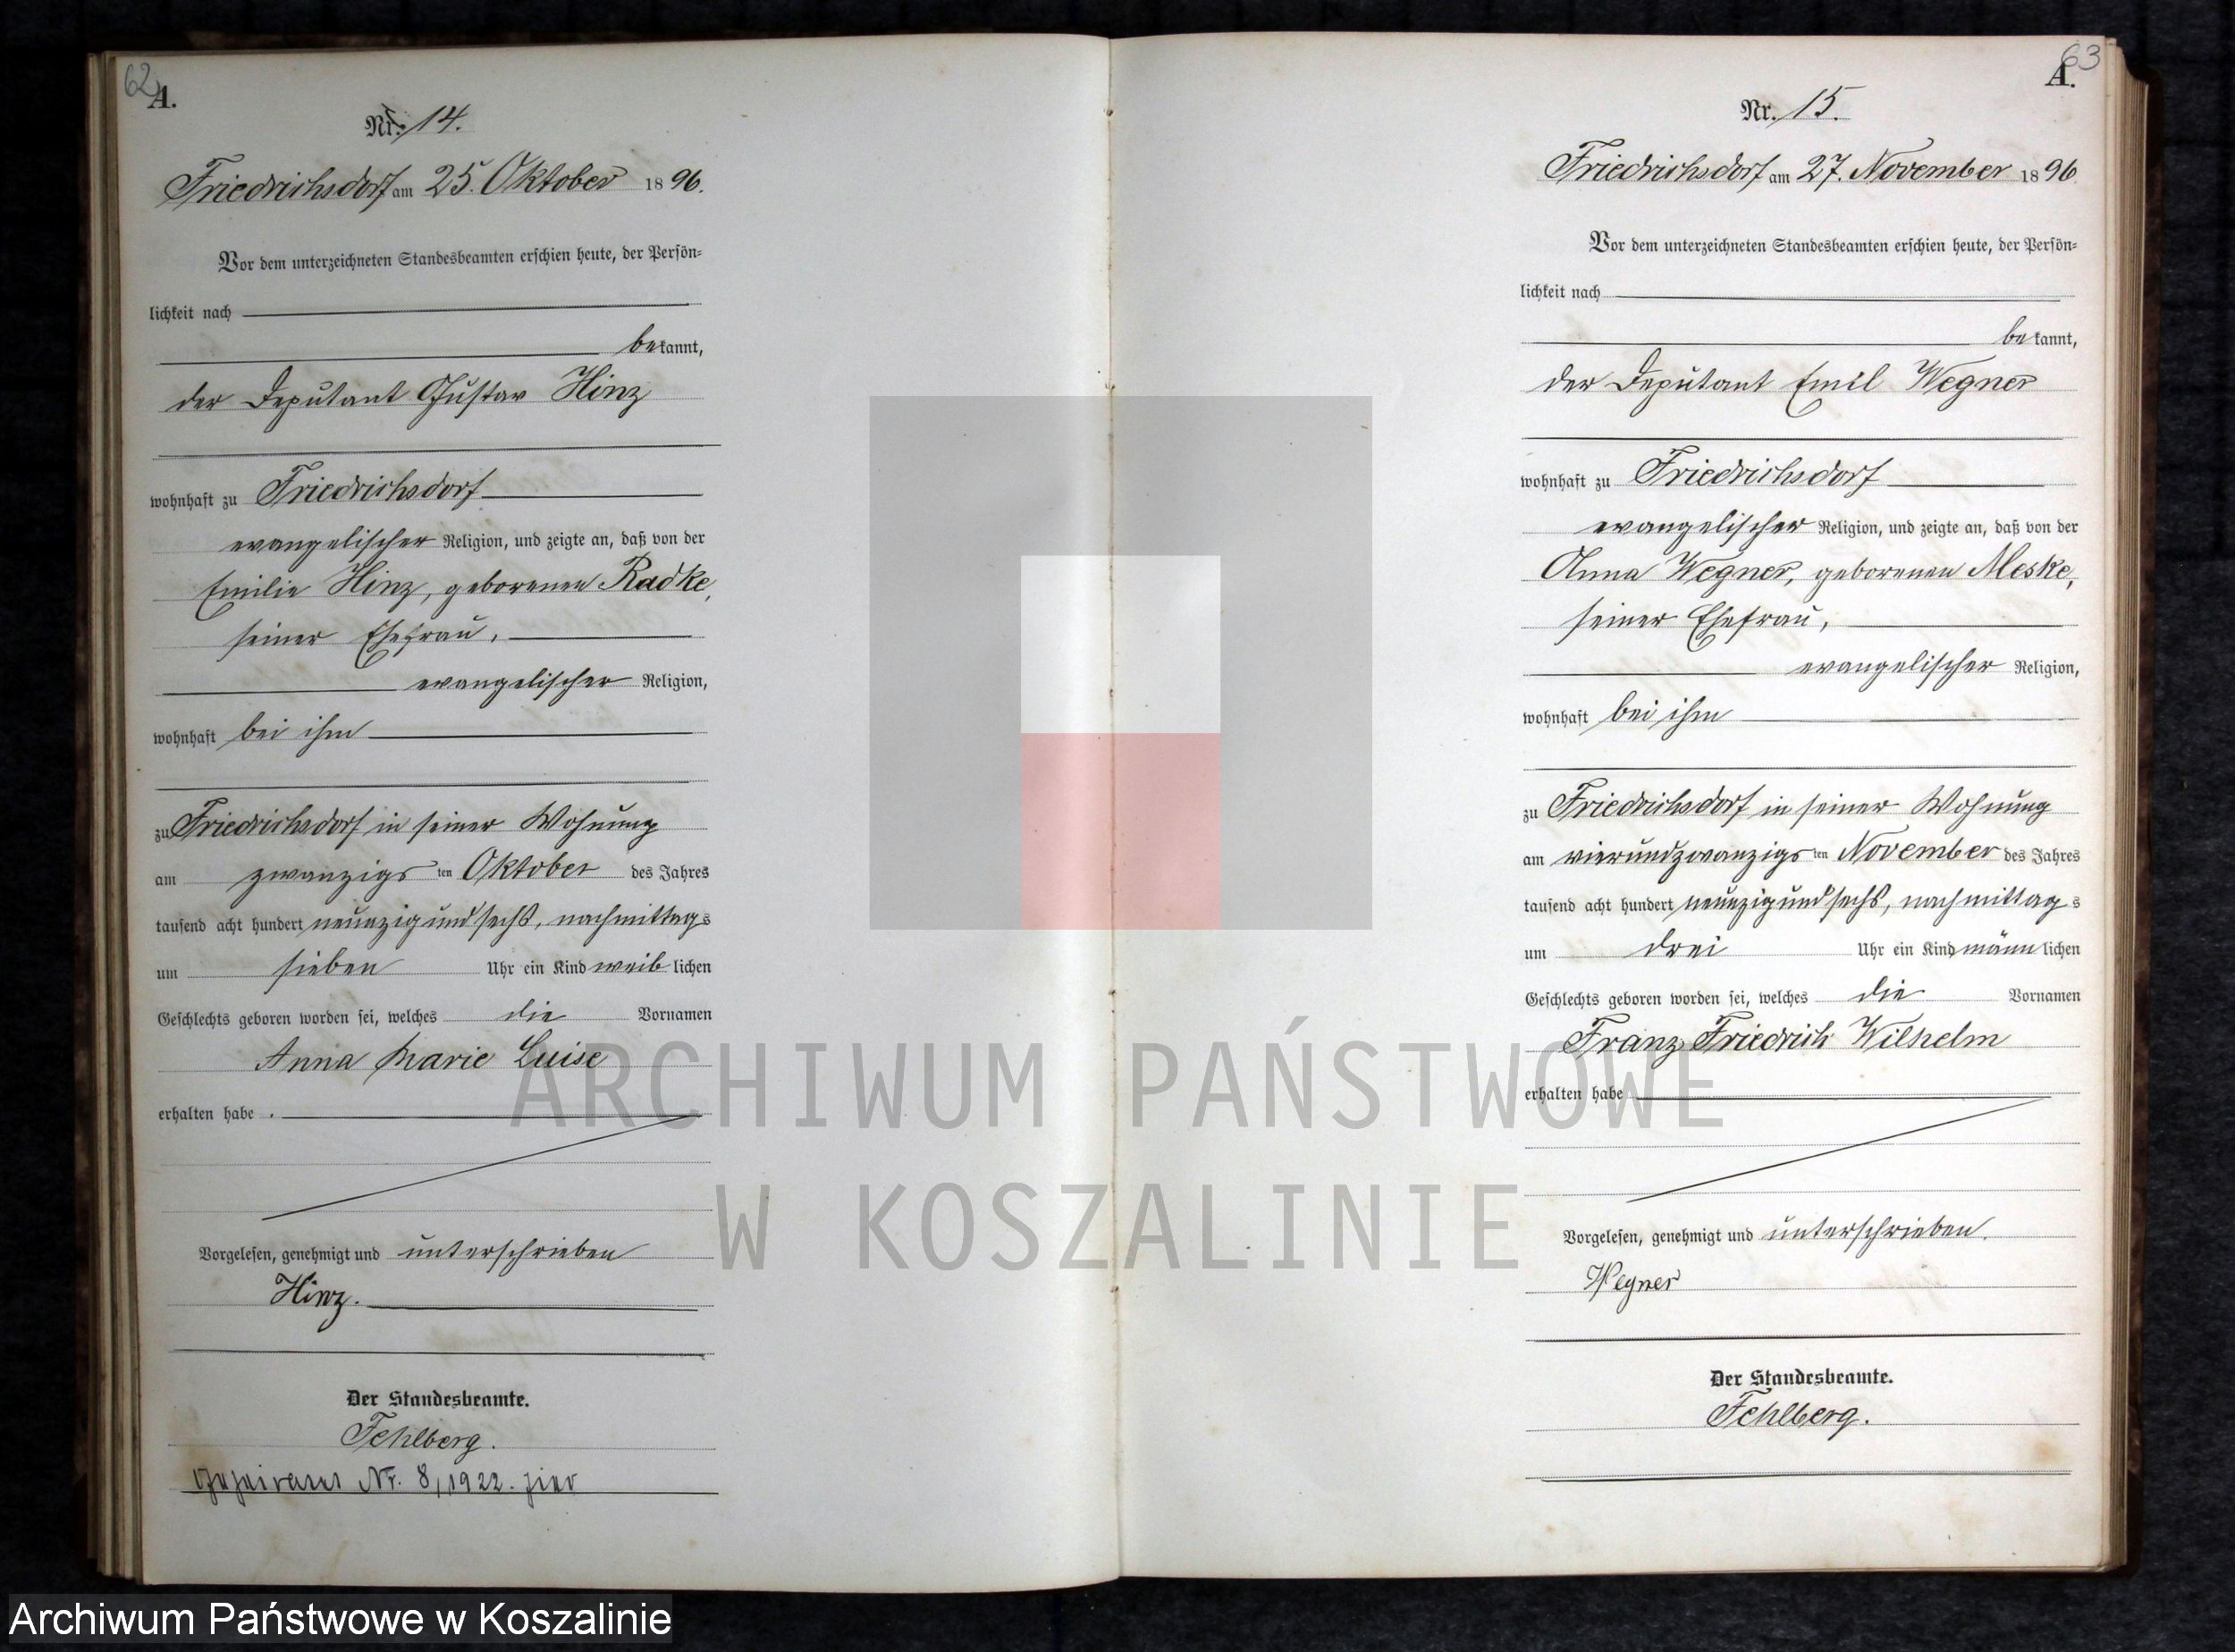 62
A.
Nr. 14.
Friedrichsdorf am 25. Oktober 1896.
Vor dem unterzeichneten Standesbeamten erschien heute, der Persön-
lichkeit nach
bekannt,
der Deputant Gustav Hinz
wohnhaft zu Friedrichsdorf
evangelischer Religion, und zeigte an, daß von der
Emilie Hinz, geborenen Radke,
seiner Ehefrau,
evangelischer Religion,
wohnhaft bei ihm
zu Friedrichsdorf in seiner Wohnung
am zwanzigsten Oktober des Jahres
tausend acht hundert neunzig und sechs, nachmittags
um sieben Uhr ein Kind weiblichen
Geschlechts geboren worden sei, welches die Vornamen
Anna Marie Luise
erhalten habe.
Vorgelesen, genehmigt und unterschrieben
Hinz.
Der Standesbeamte.
Fehlberg.
Geheiratet Nr. 8/1922. hier
63
A.
Nr. 15.
Friedrichsdorf am 27. November 1896
Vor dem unterzeichneten Standesbeamten erschien heute, der Persön-
lichkeit nach
bekannt,
der Deputant Emil Wegner
wohnhaft zu Friedrichsdorf
evangelischer Religion, und zeigte an, daß von der
Anna Wegner, geborenen Meske,
seiner Ehefrau,
evangelischer Religion,
wohnhaft bei ihm
zu Friedrichsdorf in seiner Wohnung
am vierundzwanzigsten November des Jahres
tausend acht hundert neunzig und sechs, nachmittags
um drei Uhr ein Kind männlichen
Geschlechts geboren worden sei, welches die Vornamen
Franz Friedrich Wilhelm
erhalten habe
Vorgelesen, genehmigt und unterschrieben.
Wegner
Der Standesbeamte.
Fehlberg.
ARCHIWUM PAŃSTWOWE
W KOSZALINIE
Archiwum Państwowe w Koszalinie